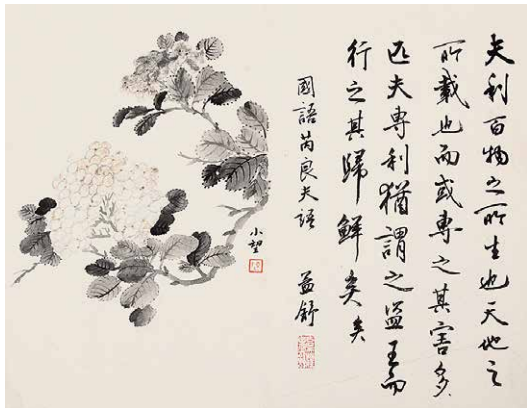 夫利百物之所生也天地之
所載也而或專之其害多
匹夫專利猶謂之盜王而
行之其歸鮮矣矣
國語芮良夫語
益舒
小望